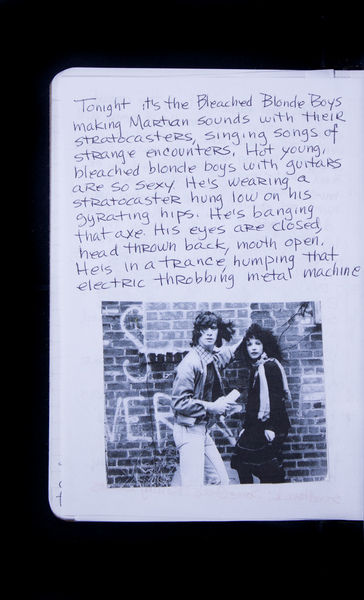 Tonight its the Bleached Blonde Boys
making Martian sounds with their
stratocasters, singing songs of
strange encounters. Hot young,
bleached blonde boys with guitars
are so sexy. He's wearing a
stratocaster hung low on his
gyrating hips. He's banging
that axe. His eyes are closed,
head thrown back, mouth open.
He's in a trance humping that
electric throbbing metal machine
VER